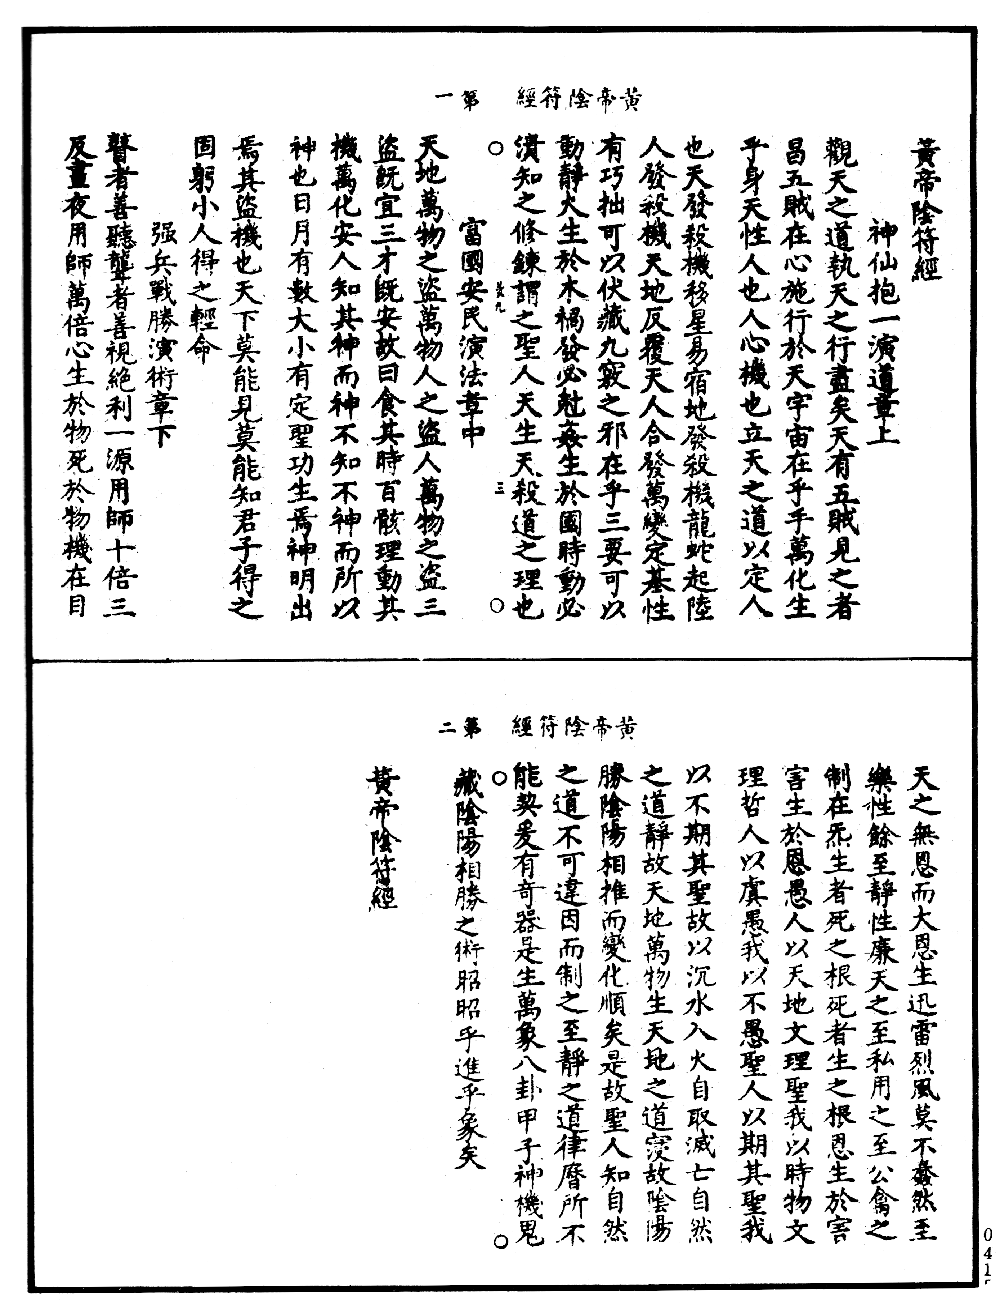 黃帝陰符經　第一
黃帝陰符經
神仙抱一演道章上
觀天之道執天之行盡矣天有五賊見之者
昌五賊在心施行於天宇宙在乎手萬化生
乎身天性人也人心機也立天之道以定人
也天發殺機移星易宿地發殺機龍蛇起陸
人發殺機天地反覆天人合發萬變定基性
有巧拙可以伏藏九竅之邪在乎三要可以
動靜火生於木禍發必尅姦生於國時動必
潰知之修鍊謂之聖人天生天殺道之理也
三
富國安民演法章中
天地萬物之盜萬物人之盜人萬物之盜三
盜既宜三才既安故曰食其時百骸理動其
機萬化安人知其神而神不知不神而所以
神也日月有數大小有定聖功生焉神明出
焉其盜機也天下莫能見莫能知君子得之
固躬小人得之輕命
强兵戰勝演術章下
瞽者善聽聾者善視絕利一源用師十倍三
反晝夜用師萬倍心生於物死於物機在目
黃帝陰符經　第二
天之無恩而大恩生迅雷烈風莫不蠢然至
樂性餘至靜性廉天之至私用之至公禽之
制在炁生者死之根死者生之根恩生於害
害生於恩愚人以天地文理聖我以時物文
理哲人以虞愚我以不愚聖人以期其聖我
以不期其聖故以沉水入火自取滅亡自然
之道靜故天地萬物生天地之道寖故陰陽
勝陰陽相推而變化順矣是故聖人知自然
之道不可違因而制之至靜之道律曆所不
能契爰有奇器是生萬象八卦甲子神機鬼
藏陰陽相勝之術昭昭乎進乎象矣
黃帝陰符經